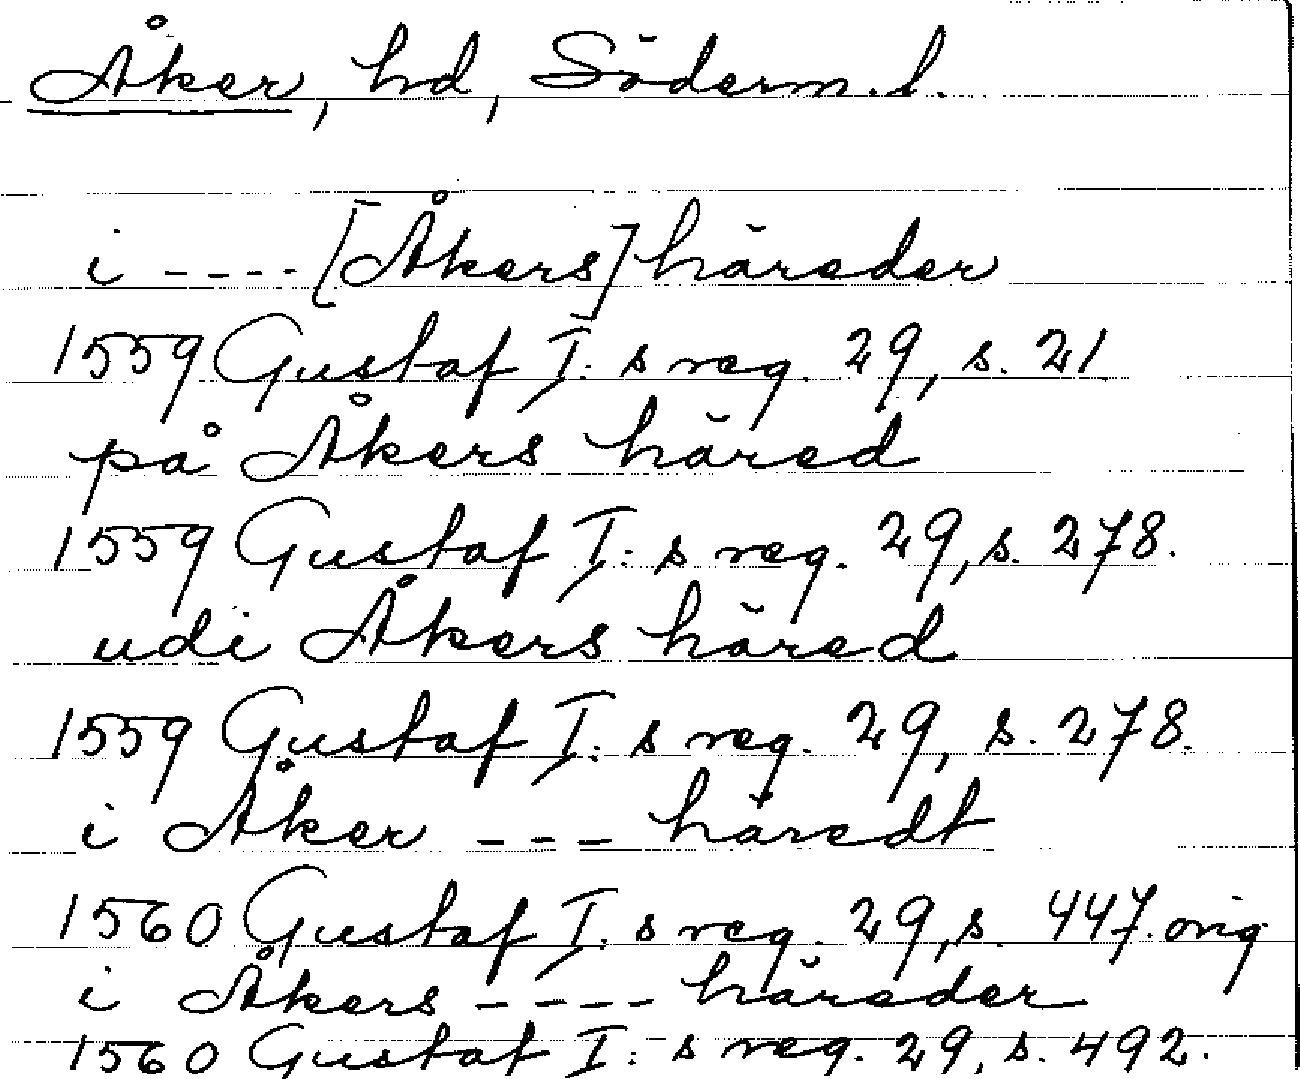 Åker, hd, Söderm. l.
i ---- [Åkers] häreder
1559 Gustaf I:s reg. 29, s. 21
på Åkers häred
1559 Gustaf I:s reg. 29, s. 278.
udi Åkers häred
1559 Gustaf I:s reg. 29, s. 278.
i Åker --- häredt
1560 Gustaf I:s reg. 29, s. 447. orig
i Åkers ---- häreder
1560 Gustaf I:s reg. 29, s. 492.